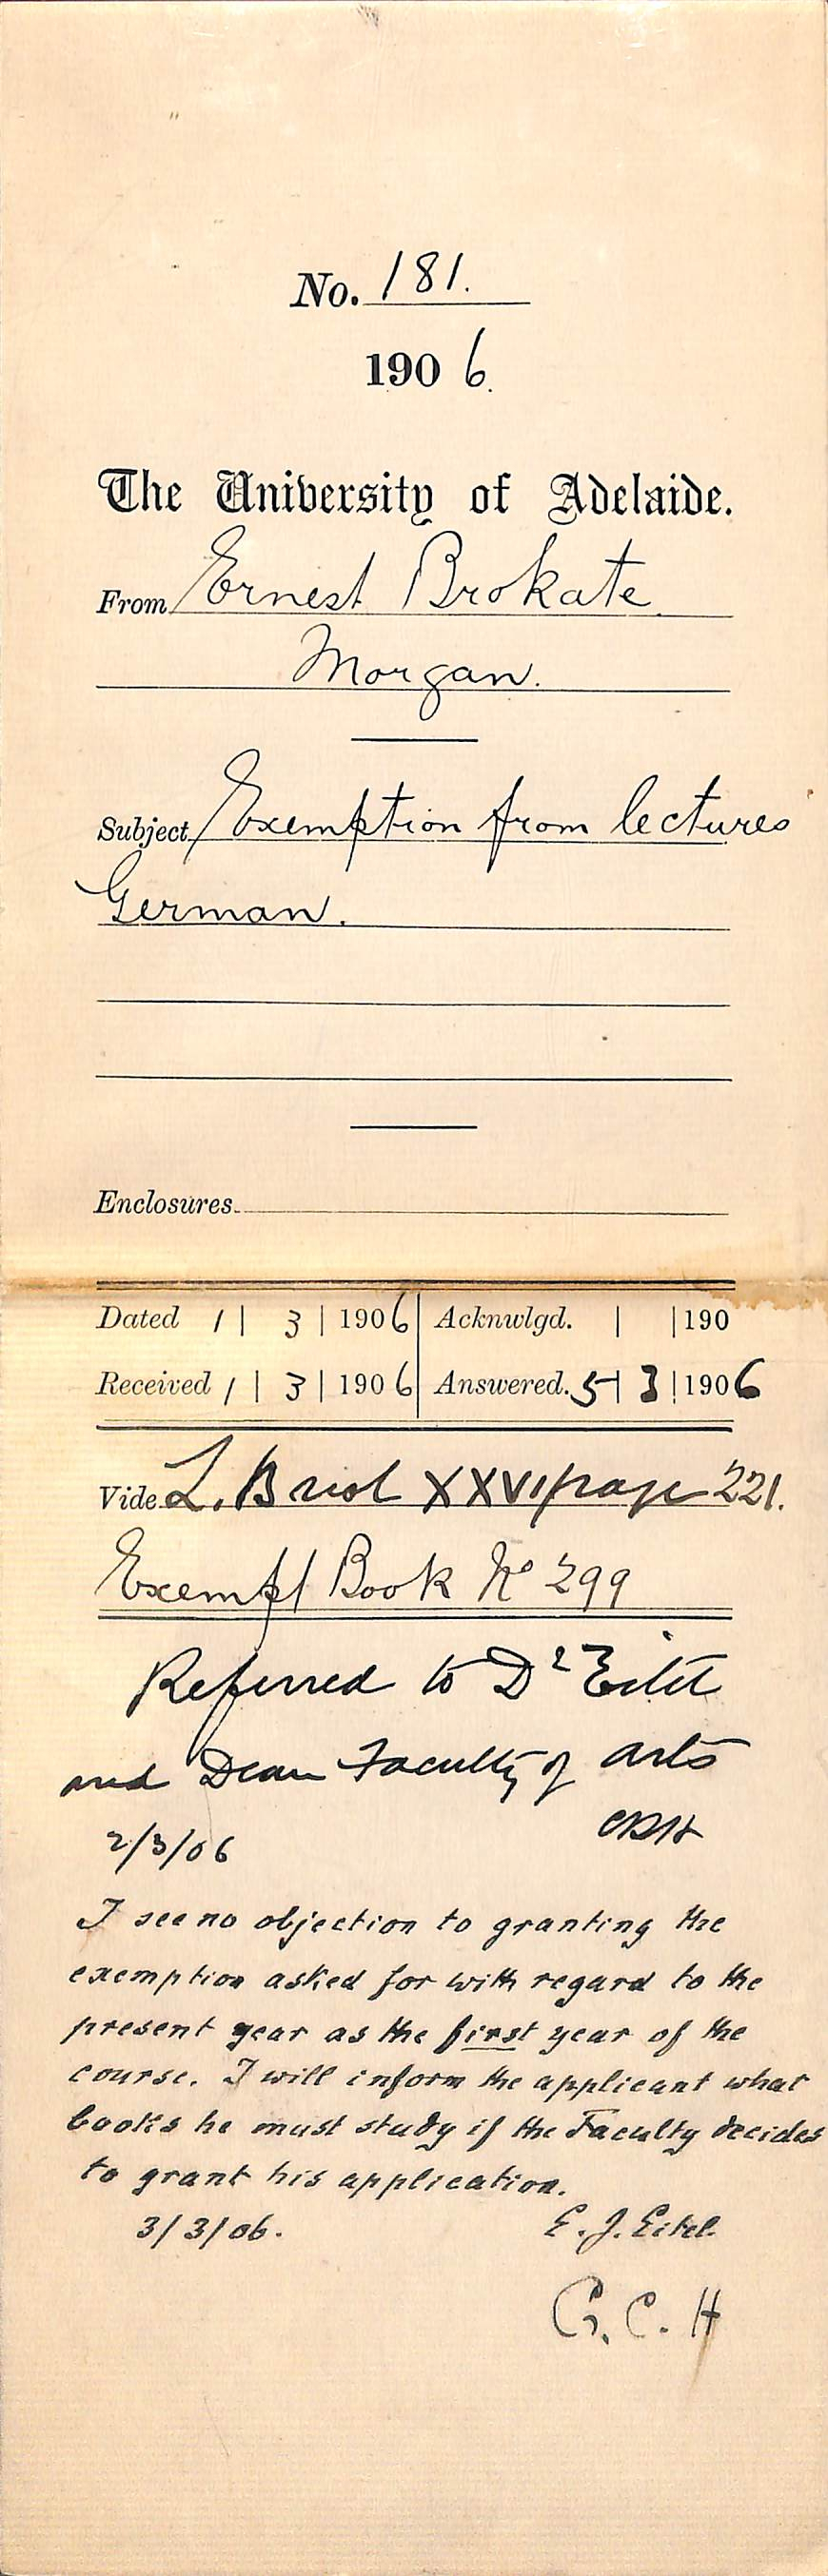 No. 181.
1906.
The University of Adelaide.
From Ernest Brokate
Morgan.
Subject Exemption from lectures
German.
Enclosures.
Dated 1 | 3 | 1906 Acknwlgd. | | 190
Received 1 | 3 | 1906 Answered. 5 | 3 | 1906
Vide L. Book XXVI page 221.
Exempt Book No 299
Referred to Dr Eitel
and Dean Faculty of Arts
2/3/06 CRH
I see no objection to granting the
exemption asked for with regard to the
present year as the first year of the
course. I will inform the applicant what
books he must study if the Faculty decides
to grant his application.
3/3/06. E. J. Eitel.
G. C. H